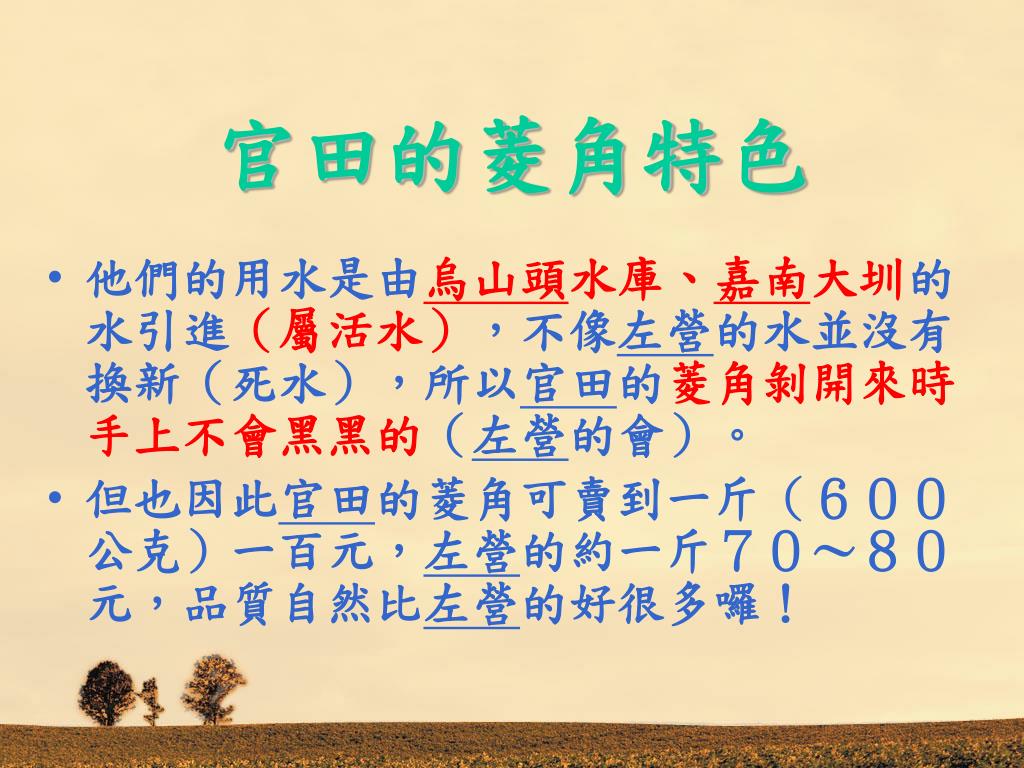 官田的菱角特色
• 他們的用水是由烏山頭水庫、嘉南大圳的
水引進（屬活水），不像左營的水並沒有
換新（死水），所以官田的菱角剝開來時
手上不會黑黑的（左營的會）。
• 但也因此官田的菱角可賣到一斤（６００
公克）一百元，左營的約一斤７０～８０
元，品質自然比左營的好很多囉！